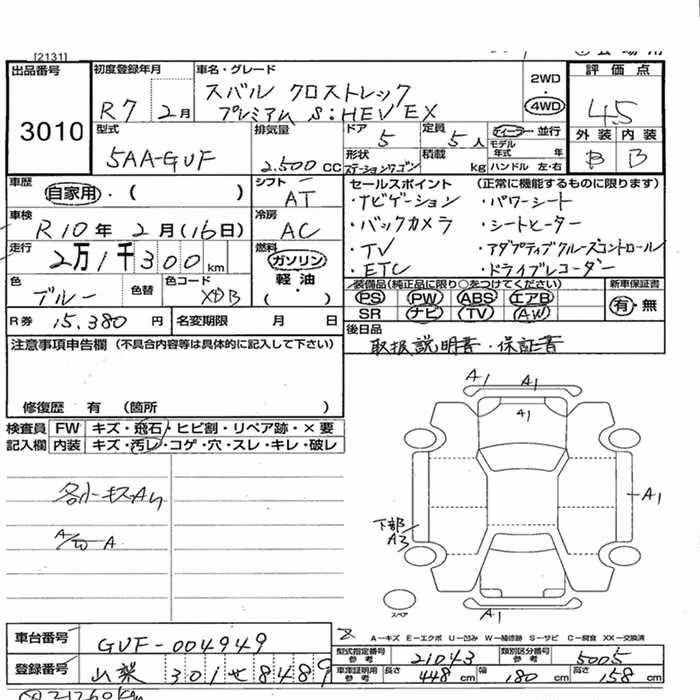 [2131]
出品番号 3010
初度登録年月 R7 2月
車名・グレード スバル クロストレック
プレミアム S:HEV EX
2WD
4WD
評価点 4.5
外装 内装
B B
型式 5AA-GUF
排気量 2.500 CC
ドア 5
定員 5人
ディーラー・並行
モデル年式 年
形状 ステーションワゴン
積載 kg
ハンドル 左・右
車歴 自家用・( )
シフト AT
車検 R10年 2月(16日)
冷房 AC
走行 2万1千300km
燃料 ガソリン
軽油・
( )
色 ブルー 色替
色コード
R券 15,380円
名変期限 月 日
セールスポイント (正常に機能するものに限ります)
・ナビゲーション ・パワーシート
・バックカメラ ・シートヒーター
・TV ・アダプティブクルーズコントロール
・ETC ・ドライブレコーダー
装備品(純正品に限り○をつけてください)
新車保証書
PS PW ABS エアB
SR ナビ TV AW
有・無
後日品
取扱説明書・保証書
注意事項申告欄 (不具合内容等は具体的に記入して下さい)
修復歴 有 (箇所 )
検査員 FW キズ・飛石・ヒビ割・リペア跡・×要
記入欄 内装 キズ・汚レ・コゲ・穴・スレ・キレ・破レ
各小キズAU
A/W A
A1 A1
A1
A1
下部
A3
A1
スペア
A−キズ E−エクボ U−凹み W−補修跡 S−サビ C−腐食 XX−交換済
車台番号 GUF-004949
登録番号 山梨 301 せ 8489
型式指定番号 参考 21043
類別区分番号 参考 5005
車庫証明用 参考 長さ 448cm 幅 180cm 高さ 158cm